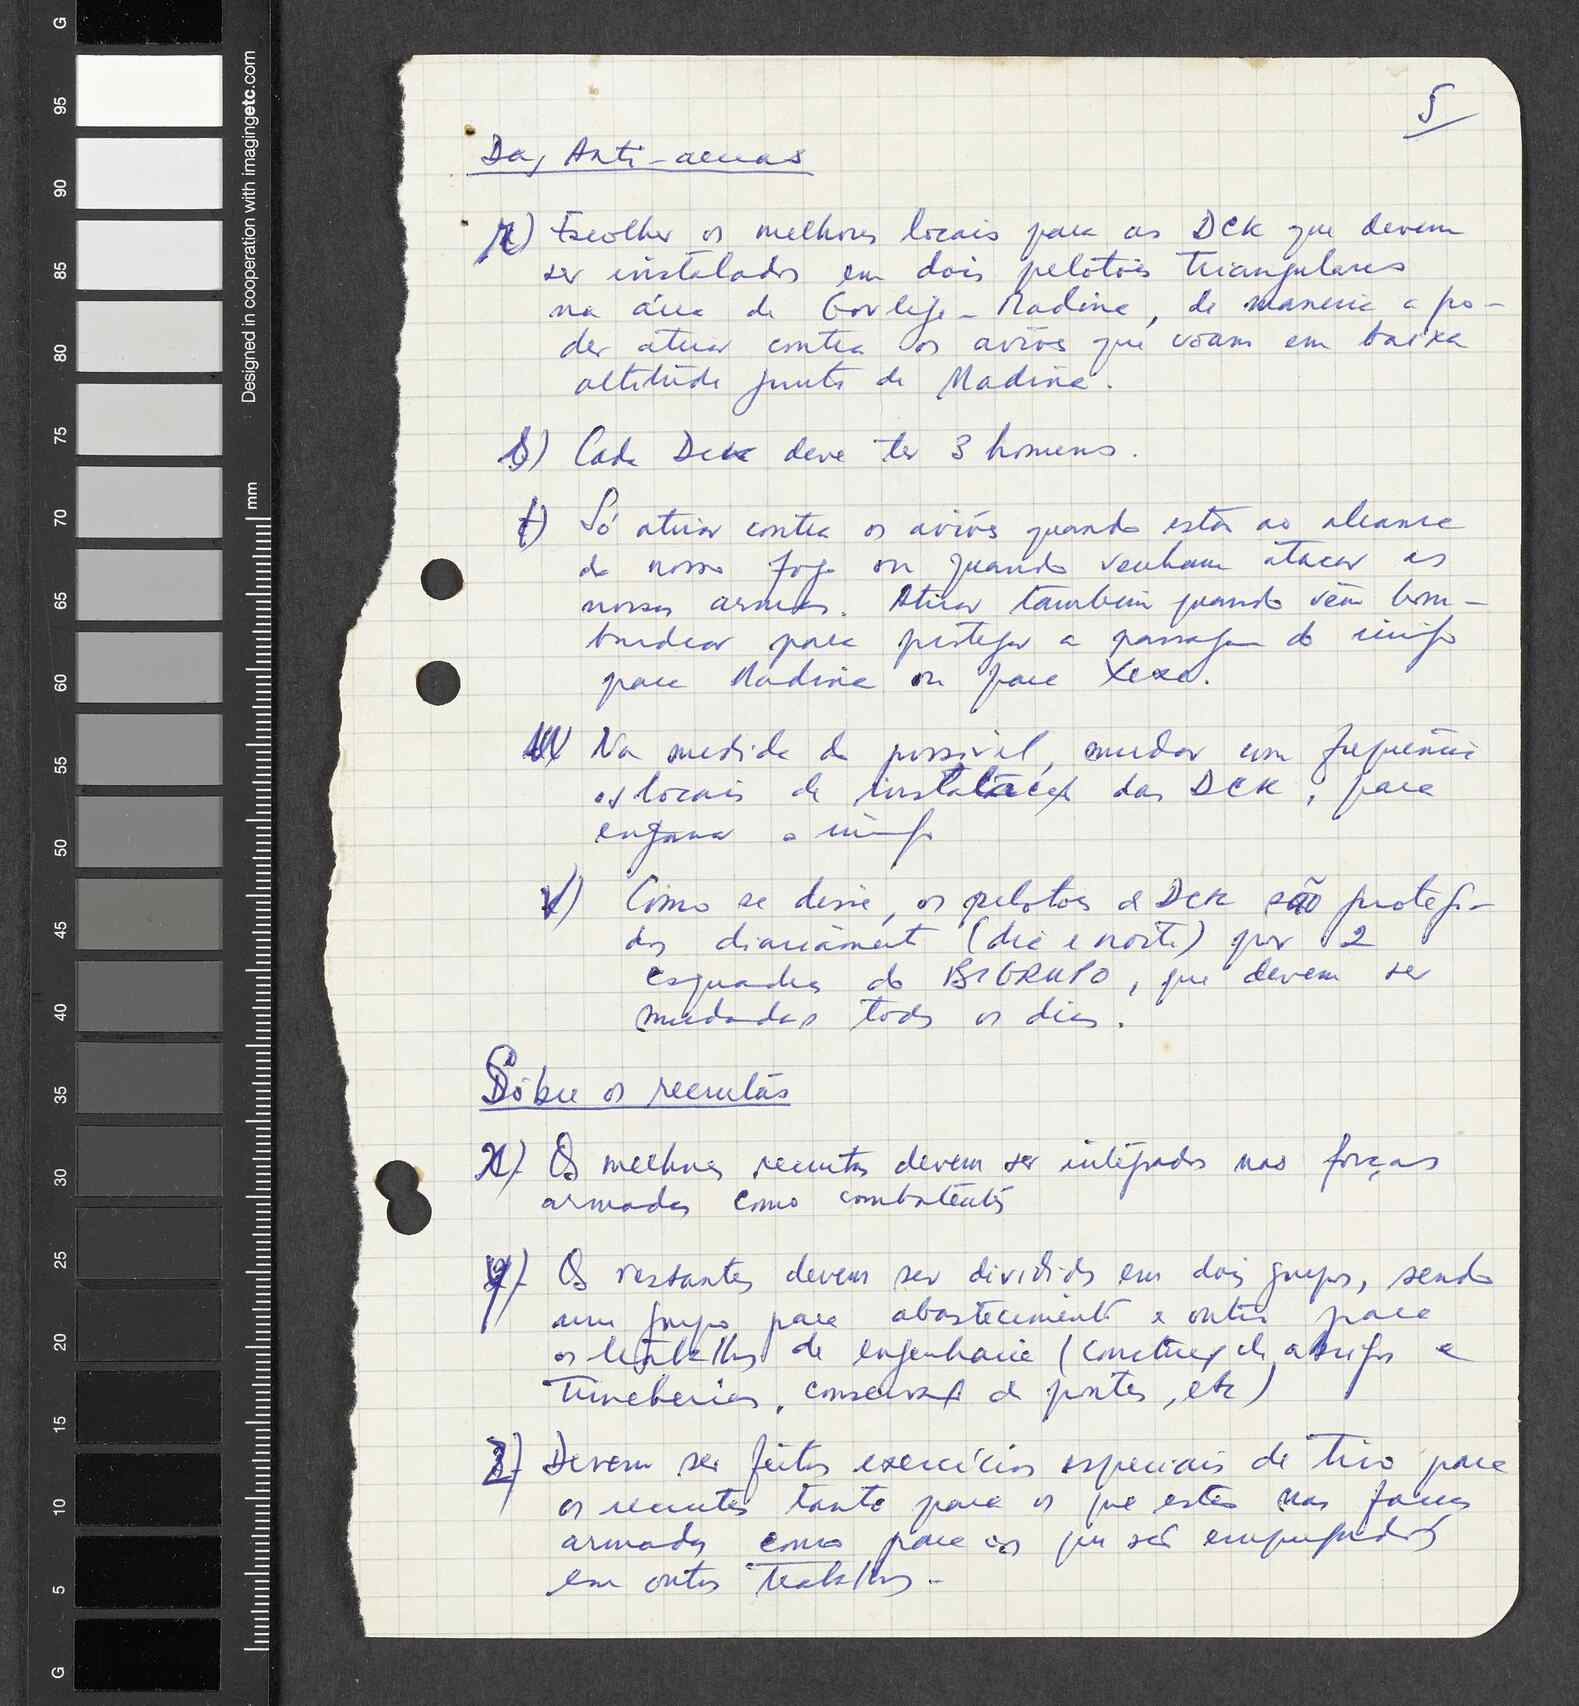 5
Das Anti-aereas
r) Escolher os melhores locais para as DCK que devem
ser instalados em dois pelotões triangulares
na área de Gorlije - Madina, de maneira a po-
der atirar contra os aviões que voam em baixa
altitude junto de Madina.
s) Cada DCK deve ter 3 homens.
t) Só atirar contra os aviões quando estão ao alcance
do nosso fogo ou quando venham atacar as
nossas armas. Atirar também quando vêm bom-
bardear para proteger a passagem do inimigo
para Madina ou para Xexe.
Na medida do possível, mudar com frequência
os locais de instalação das DCK, para
enganar o inimigo
v) Como se disse, os pelotões de DCK são protegi-
dos diariamente (dia e noite) por 2
esquadras do BIGRUPO, que devem ser
mudadas todos os dias.
Sôbre os recrutas
x) Os melhores recrutas devem ser integrados nas forças
armadas como combatentes
y) Os restantes devem ser divididos em dois grupos, sendo
um grupo para abastecimento e outro para
os trabalhos de engenharia (construção de abrigos e
trincheiras, conservação de pontes, etc)
z) Devem ser feitos exercícios especiais de tiro para
os recrutas tanto para os que estão nas forças
armadas como para os que são empregados
em outros trabalhos.
Designed in cooperation with imagingetc.com
mm
G
95
90
85
80
75
70
65
60
55
50
45
40
35
30
25
20
15
10
5
G